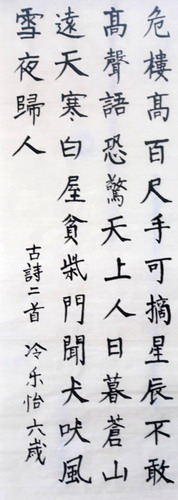 危樓高百尺手可摘星辰不敢
高聲語恐驚天上人日暮蒼山
遠天寒白屋貧柴門聞犬吠風
雪夜歸人
古詩二首 冷乐怡六歲